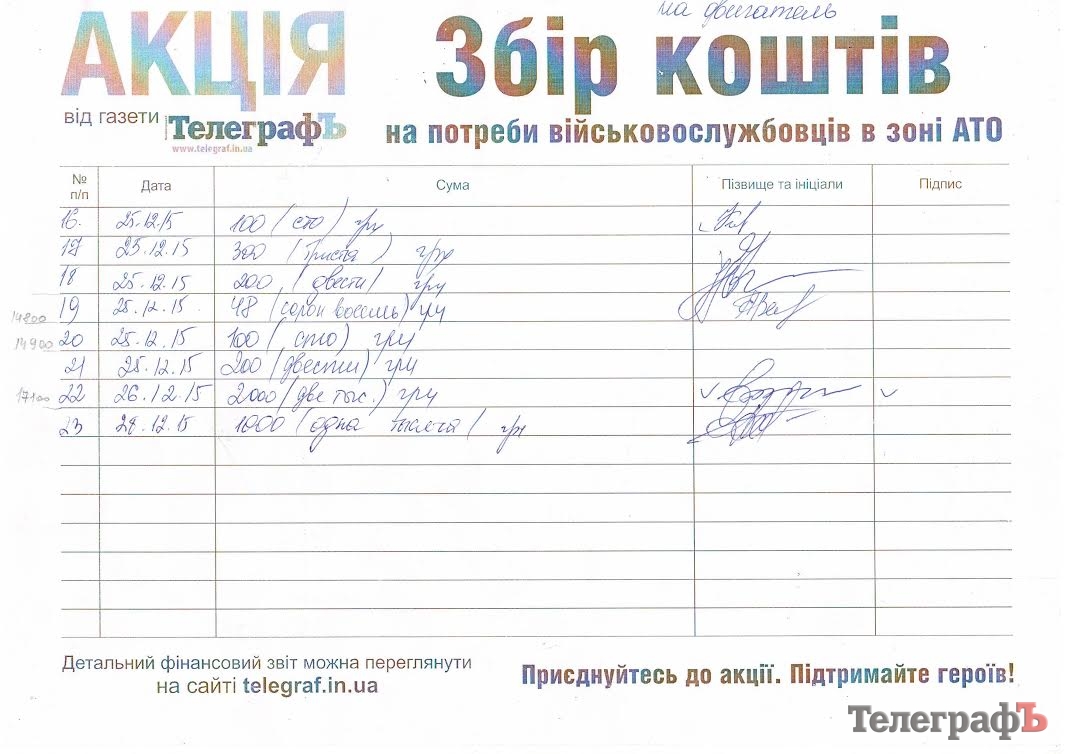 на двигатель
АКЦІЯ
Збір коштів
від газети ТелеграфЪ
www.telegraf.in.ua
на потреби військовослужбовців в зоні АТО
№ п/п Дата Сума Пізвище та ініціали Підпис
16. 25.12.15 100 (сто) грн
17 25.12.15 300 (триста) грн
18 25.12.15 200 (двести) грн
19 25.12.15. 48 (сорок восемь) грн
14800
20 25.12.15 100 (сто) грн
14900
21 25.12.15 200 (двести) грн
22 26.12.15 2000 (две тыс.) грн
17100
23 28.12.15 1000 (одна тысяча) грн
Детальний фінансовий звіт можна переглянути
на сайті telegraf.in.ua
Приєднуйтесь до акції. Підтримайте героїв!
ТелеграфЪ